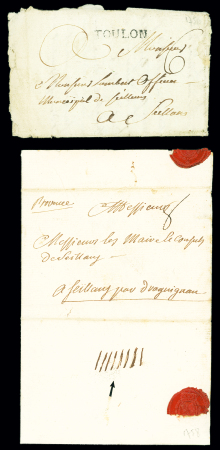 TOULON
Monsieur
Monsieur Lambert officier
Municipal de Seillans
A Seillans
Provence
Messieurs
Messieurs les Maire &
de Seillans
a Seillans par Draguignan